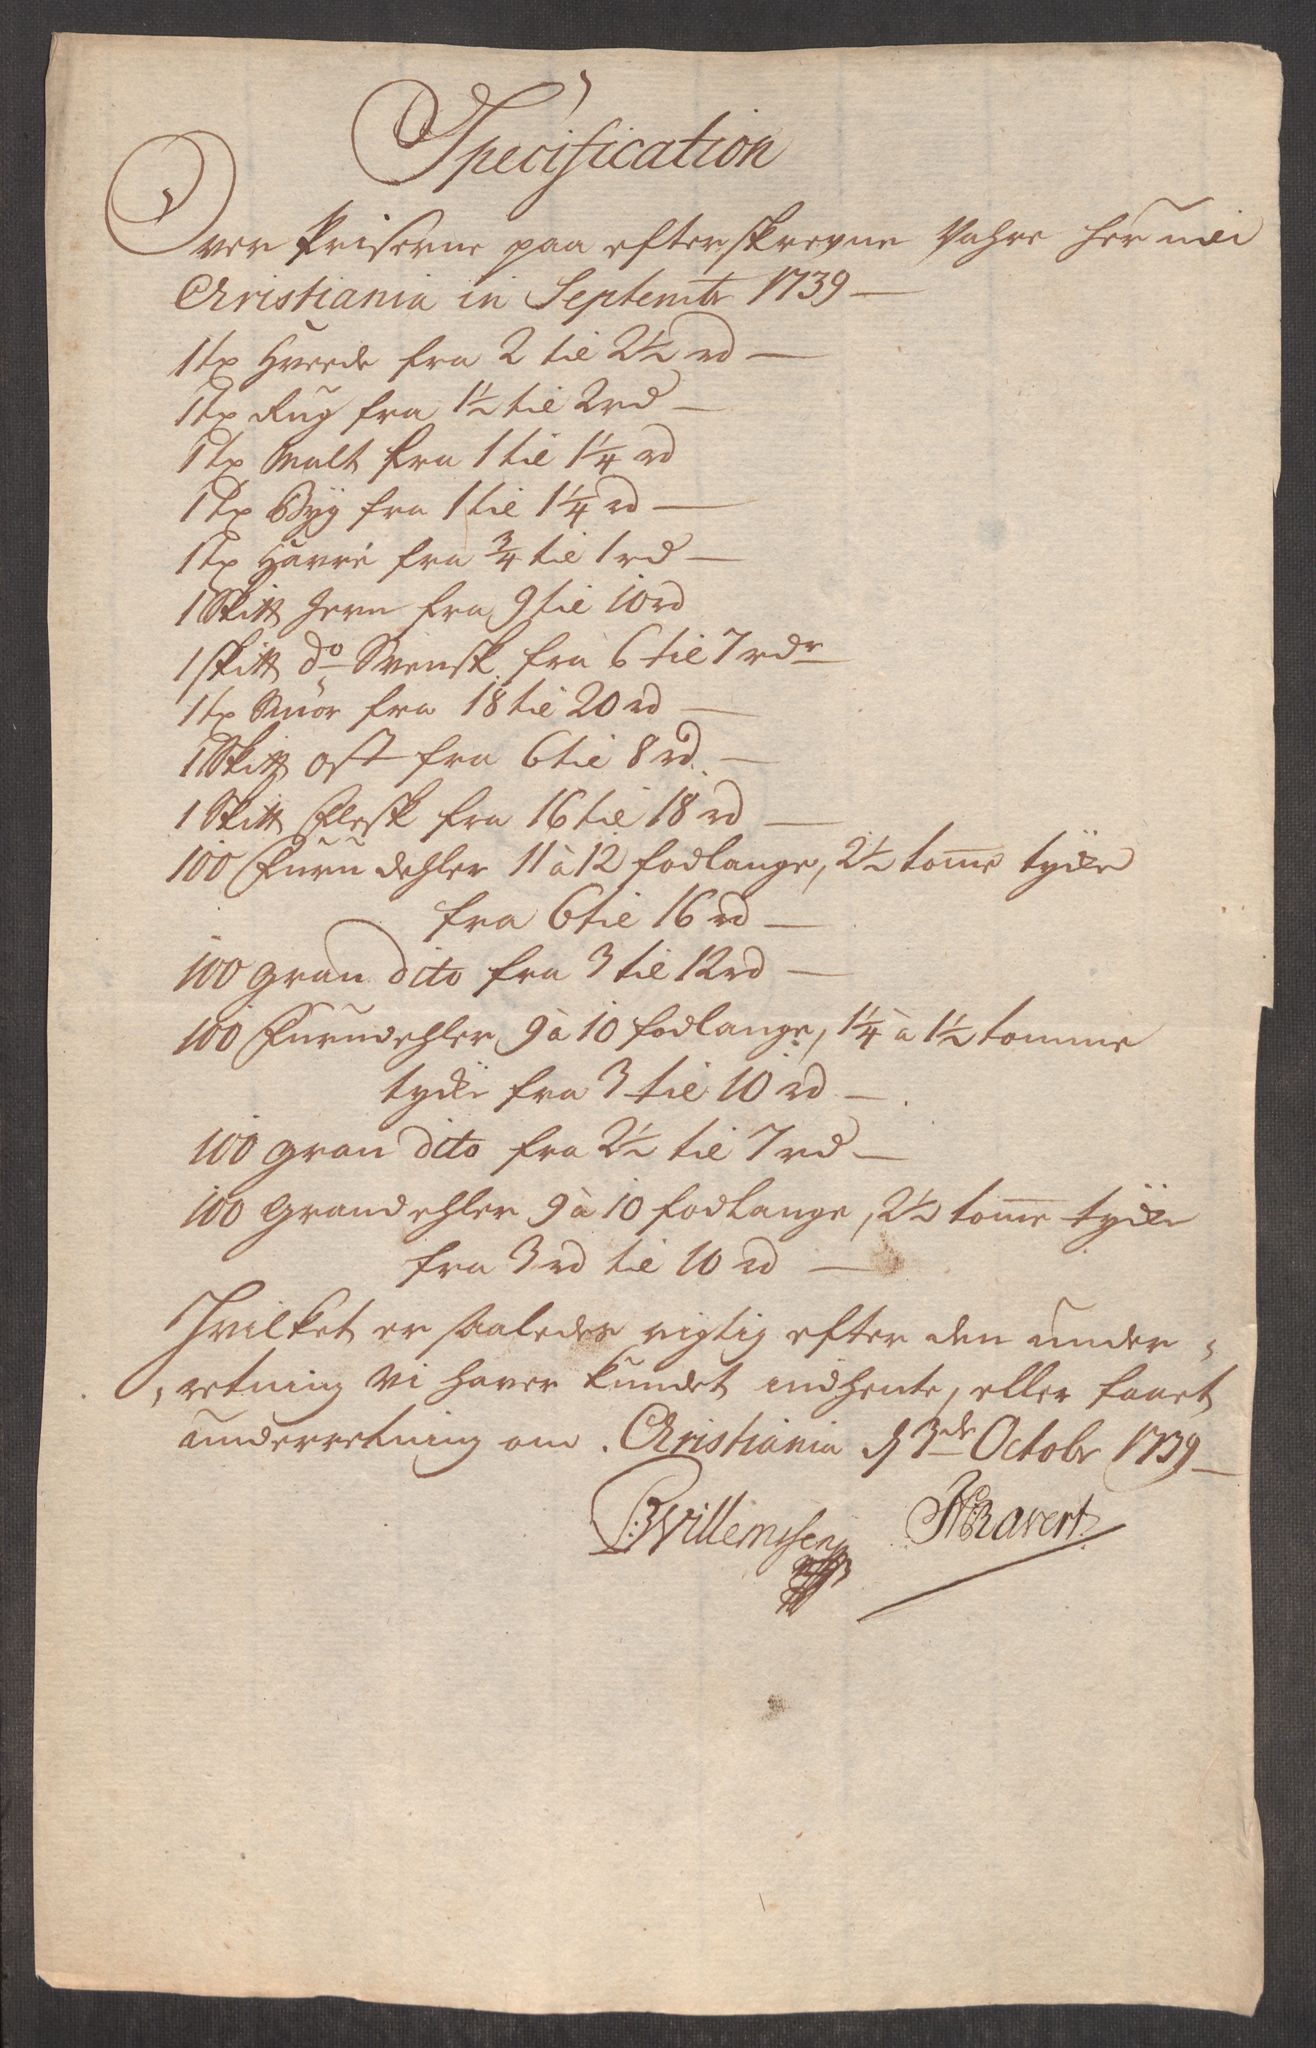 Specification
Over Priserne paa efterskrevne Vahre her udi
Christiania in Septembr 1739 —
1 tr Hvede fra 2 til 2½ rd —
1 tr Rug fra 1½ til 2 rd —
1 tr Malt fra 1 til 1¼ rd
1 tr Byg fra 1 til 1¼ rd —
1 tr Havre fra ¾ til 1 rd —
1 Skitt Jern fra 9 til 10 rd
1 Skitt do Svensk fra 6 til 7 rdr
1 tr Smør fra 18 til 20 rd —
1 Skitt Ost fra 6 til 8 rd. —
1 Skitt Flesk fra 16 til 18 rd —
100 Furu dehler 11 à 12 fodlange, 2½ tome tycke
fra 6 til 16 rd —
100 gran dito fra 3 til 12 rd —
100 Furudehler 9 à 10 fodlange, 1¼ à 1½ tomme
tycke fra 3 til 10 rd —
100 gran dito fra 2½ til 7 rd —
100 Grandehler 9 à 10 fodlange, 2½ tome tycke
fra 3 rd til 10 rd —
Hvilket er saaledes rigtig efter den under-
retning vi haver kundet indhente, eller faaet
underretning om. Christiania d 3de Octobr 1739 —
B Willemssen
Ravert